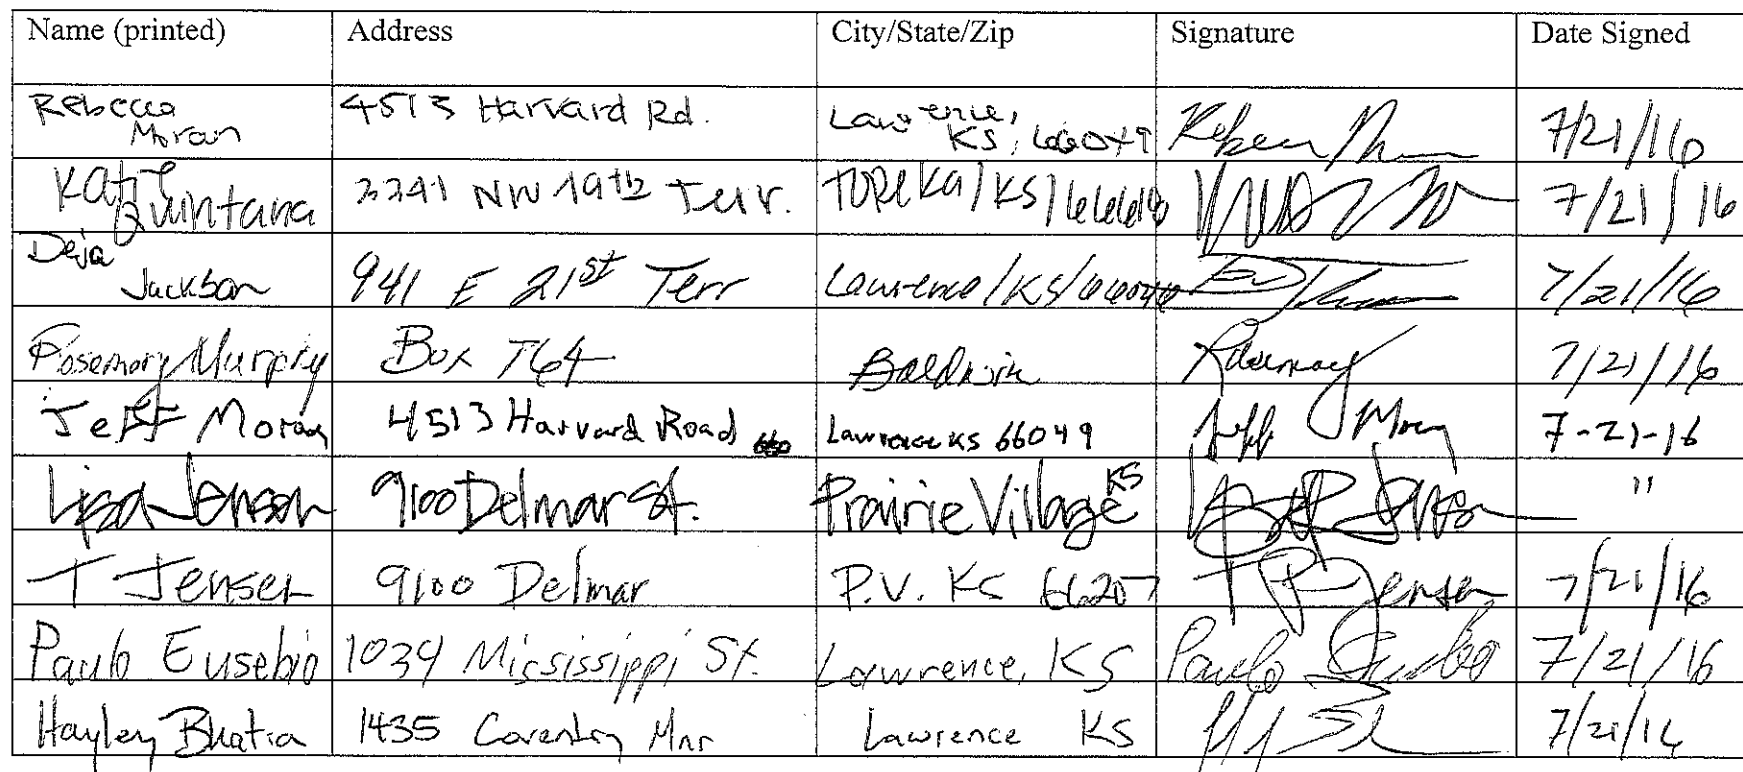 Name (printed) Address City/State/Zip Signature Date Signed
Rebecca Moran 4513 Harvard Rd. Lawrence, KS, 66049 7/21/16
Katie Quintana 2241 NW 19th Terr. TOPEKA/KS/66618 7/21/16
Deja Jackson 941 E 21st Terr Lawrence/KS/66046 7/21/16
Rosemary Murphy Box 764 Baldwin 7/21/16
Jeff Moran 4513 Harvard Road Lawrence KS 66049 Jeff Moran 7-21-16
Lisa Jensen 9100 Delmar St. Prairie Village KS "
T Jensen 9100 Delmar P.V. KS 66207 T P Jensen 7/21/16
Paulo Eusebio 1034 Mississippi St. Lawrence, KS Paulo Eusebio 7/21/16
Hayley Bhatia 1435 Coventry Mnr Lawrence KS 7/21/16